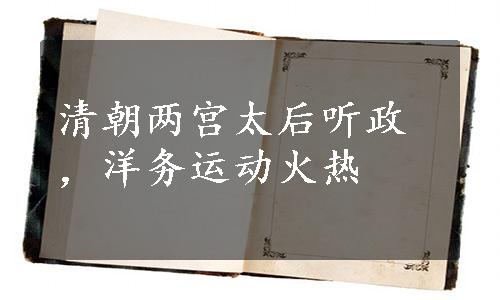 清朝两宫太后听政
，洋务运动火热